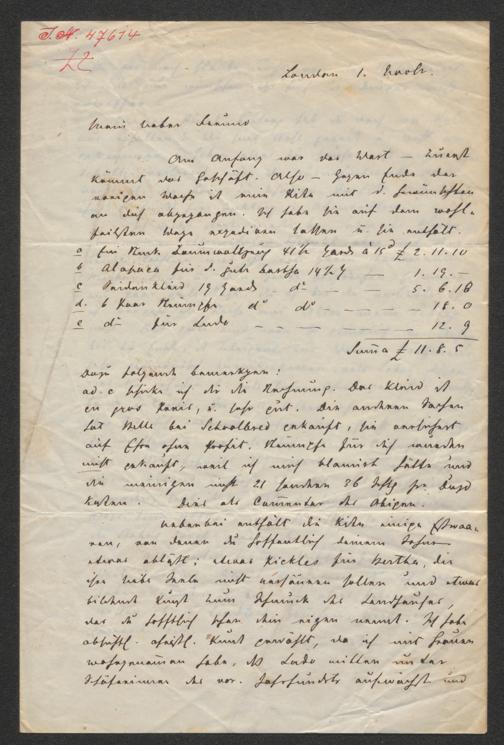 J.N. 47614
London 1. Novb.
Mein lieber Freund
Am Anfang war das Wort – zuerst
kommt das Geschäft. Also – gegen Ende der
vorigen Woche ist eine Kiste mit d. Gewünschten
an dich abgegangen. Ich habe sie auf dem wohl-
feilsten Wege expediren lassen u. sie enthält:
a Ein Stück Baumwollzeug 41½ Yards à 15d £ 2.11.10
b Alapaca für d. gute Bertha 14½ Y — 1.19.–
c Seidenkleid 19 Yards – do – 5.6.18
d. 6 Paar Strümpfe do do – – – – 18.0
e do für Ludo – – – – – 12.9
Summa £ 11.8.5
Dazu folgende Bemerkungen:
ad. c schicke ich dir die Rechnung. Das Kleid ist
en gros Preis, u. sehr gut. Die anderen Sachen
hat Belle bei Schoolbred gekauft, sie versichert
auf Ehre ohne Profit. Strümpfe für dich wurden
nicht gekauft, weil ich mich blamirt hätte und
die meinigen nicht 21 sondern 36 Schlg per Duzd
kosten. Dies als Commentar des Obigen.
Nebenbei enthält die Kiste einige Esswaa-
ren, von denen du hoffentlich deinem Sohne
etwas abläßt; etwas Pickles für Bertha, die
ihre liebe Seele nicht versäuern sollen und etwas
bildende Kunst zum Schmuck des Landhauses,
das du hoffentlich schon dein eigen nennst. Ich habe
absichtl. Kunst gewählt, da ich mit Freuen
wahrgenommen habe, daß Ludo mitten unter
Schäferinnen des vor. Jahrhunderts aufwächst und